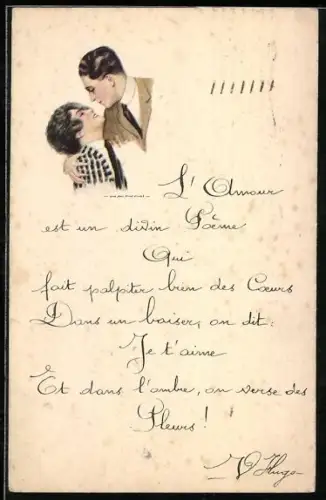 L'Amour
est un divin Poême
Qui
fait palpiter bien des Cœurs
Dans un baiser, on dit :
Je t'aime
Et dans l'ombre, on verse des
Pleurs !
V Hugo